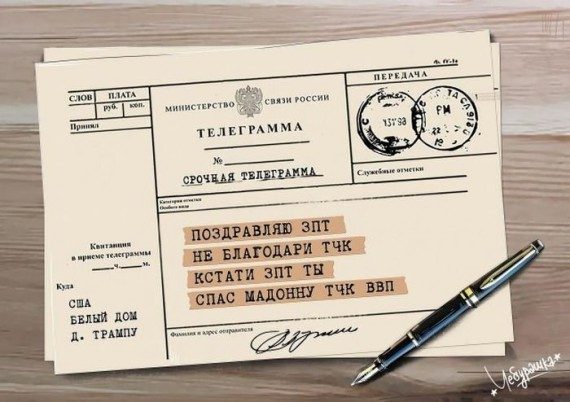 СЛОВ ПЛАТА
руб. коп.
Принял
МИНИСТЕРСТВО СВЯЗИ РОССИИ
ТЕЛЕГРАММА
№
СРОЧНАЯ ТЕЛЕГРАММА
ПЕРЕДАЧА
13Т98
PM
Служебные отметки
Категория отметки
Особого вида
ПОЗДРАВЛЯЮ ЗПТ
НЕ БЛАГОДАРИ ТЧК
КСТАТИ ЗПТ ТЫ
СПАС МАДОННУ ТЧК ВВП
Квитанция
в приеме телеграммы
ч. м.
Куда
США
БЕЛЫЙ ДОМ
Д. ТРАМПУ
Фамилия и адрес отправителя
Чебурашка